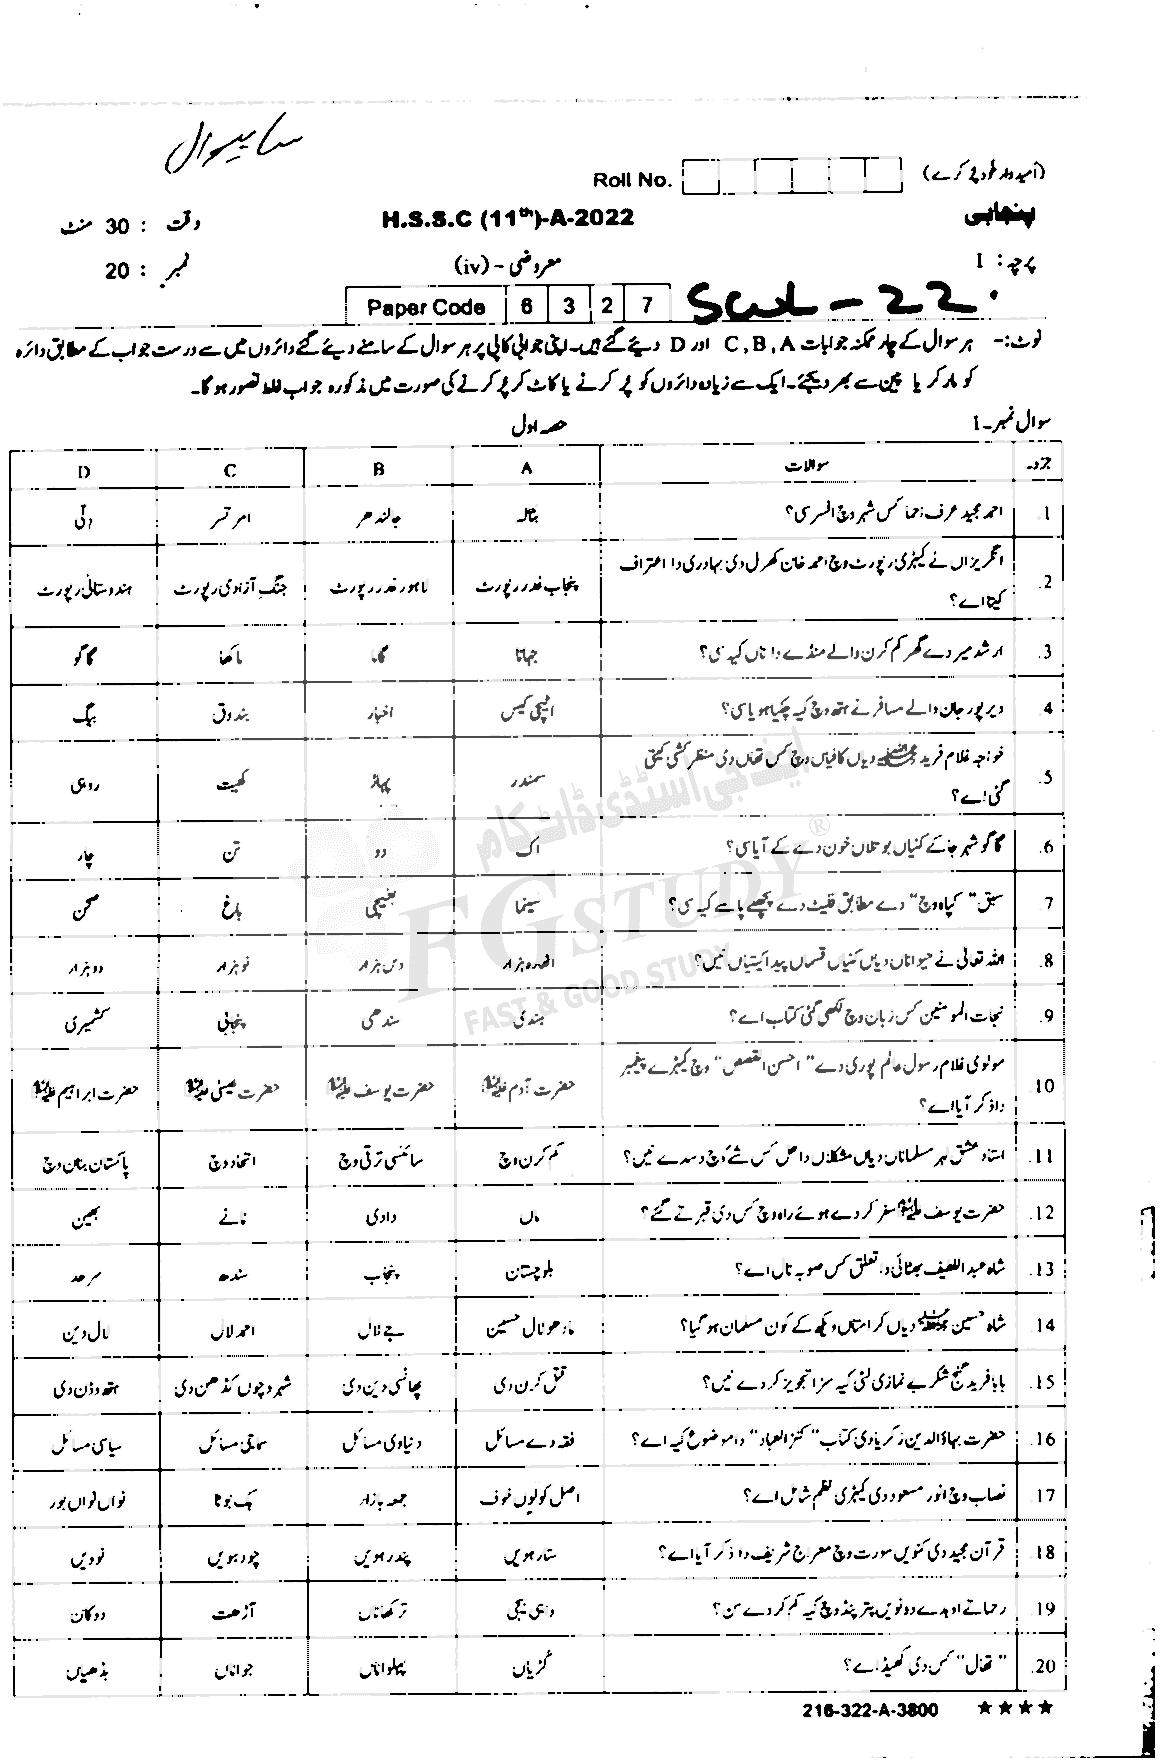 ساہیوال
Roll No. (امیدوار خود پُر کرے)
پنجابی H.S.S.C (11th)-A-2022 وقت : 30 منٹ
پرچہ : I معروضی - (iv) نمبر : 20
Paper Code 6 3 2 7 Swl-22
نوٹ:- ہر سوال کے چار ممکنہ جوابات C, B, A اور D دیئے گئے ہیں۔ اپنی جوابی کاپی پر ہر سوال کے سامنے دیئے گئے دائروں میں سے درست جواب کے مطابق دائرہ
کو مارکر یا پین سے بھر دیجئے۔ ایک سے زیادہ دائروں کو پُر کرنے یا کاٹ کر پُر کرنے کی صورت میں مذکورہ جواب غلط تصور ہوگا۔
سوال نمبر-1 حصہ اول
سوالات A B C D
1. احمد مجید عرف کس شہر وچ افسر سی؟ بٹالہ جالندھر امرتسر
2. انگریزاں نے کیہڑی رپورٹ وچ احمد خان کھرل دی بہادری دا اعتراف پنجاب غدر رپورٹ لاہور غدر رپورٹ جنگ آزادی رپورٹ ہندوستانی رپورٹ
کیتا اے؟
3. ارشد میر دے گھر کم کرن والے منڈے دا ناں کیہ سی؟ جہانا گاما ماکھا گاگو
4. دیر پور جان والے مسافر نے ہتھ وچ کیہ چکیا ہویا سی؟ اٹیچی کیس اخبار بندوق بیگ
5. خواجہ غلام فرید دیاں کافیاں وچ کس تھاں دی منظر کشی کیتی سمندر پہاڑ کھیت روہی
گئی اے؟
6. گاگو شہر جا کے کنیاں بوتلاں خون دے کے آیا سی؟ اک دو تن چار
7. سبق "کیاہ وچ" دے مطابق فلیٹ دے پچھلے پاسے کیہ سی؟ سینما بغیچی باغ صحن
8. اللہ تعالیٰ نے حیواناں دیاں کنیاں قسماں پیدا کیتیاں نیں؟ اٹھارہ ہزار دس ہزار نو ہزار دو ہزار
9. نجات المومنین کس زبان وچ لکھی گئی کتاب اے؟ ہندی سندھی پنجابی کشمیری
10. مولوی غلام رسول عالم پوری دے "احسن القصص" وچ کیہڑے پیغمبر حضرت آدم علیہ السلام حضرت یوسف علیہ السلام حضرت عیسیٰ علیہ السلام حضرت ابراہیم علیہ السلام
دا ذکر آیا اے؟
11. استاد عشق لہر مسلماناں دیاں مشکلاں دا حل کس شے وچ دسدے نیں؟ کم کرن وچ سائنسی ترقی وچ اتحاد وچ پاکستان بنان وچ
12. حضرت یوسف علیہ السلام سفر کردے ہوئے راہ وچ کس دی قبر تے گئے؟ ماں دادی نانے بھین
13. شاہ عبداللطیف بھٹائی دا تعلق کس صوبہ نال اے؟ بلوچستان پنجاب سندھ سرحد
14. شاہ حسین دیاں کرامتاں ویکھ کے کون مسلمان ہو گیا؟ مادھو لال حسین جے لال احمد لال لال دین
15. بابا فرید گنج شکر بے نمازی لئی کیہ سزا تجویز کردے نیں؟ قتل کرن دی پھانسی دین دی شہر وچوں کڈھن دی ہتھ وڈن دی
16. حضرت بہاؤالدین زکریا دی کتاب "کنز العباد" دا موضوع کیہ اے؟ فقہ دے مسائل دنیاوی مسائل سماجی مسائل سیاسی مسائل
17. نصاب وچ انور مسعود دی کیہڑی نظم شامل اے؟ اصل کولوں خوف جمعہ بازار اک بوٹا نواں نواں بور
18. قرآن مجید دی کنویں سورت وچ معراج شریف دا ذکر آیا اے؟ ستارہویں پندرہویں چودہویں نوویں
19. رحما تے اوہدے دونویں پتر پنڈ وچ کیہ کم کردے سن؟ واہی بیجی ترکھاناں آڑھت دوکان
20. "تھال" کس دی کھیڈ اے؟ کڑیاں پہلواناں جواناں بڈھیاں
216-322-A-3800 ★★★★
ایف جی اسٹڈی ڈاٹ کام
FG STUDY ®
FAST & GOOD STUDY